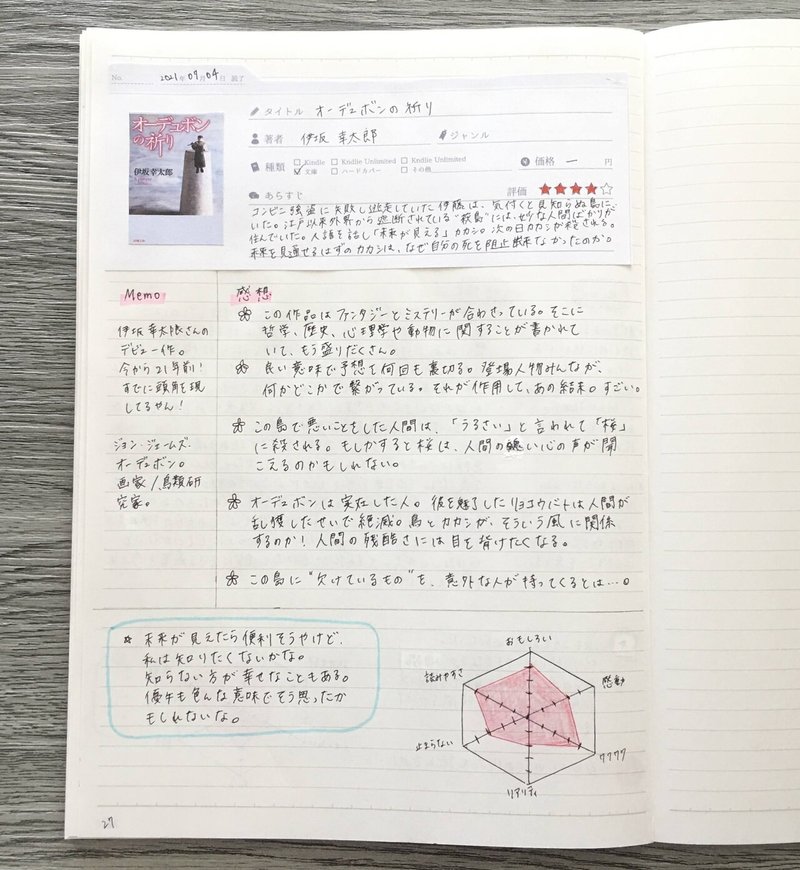 No. 2021年09月04日 読了
オーデュボンの祈り
伊坂幸太郎
タイトル オーデュボンの祈り
著者 伊坂 幸太郎 ジャンル
種類 Kindle Kindle Unlimited Kindle Unlimited 価格 ー 円
文庫 ハードカバー その他
あらすじ 評価 ★★★★☆
コンビニ強盗に失敗し逃走していた伊藤は、気付くと見知らぬ島に
いた。江戸以来外界から遮断されている"荻島"には、妙な人間ばかりが
住んでいた。人語を話し「未来が見える」カカシ。次の日カカシが殺される。
未来を見通せるはずのカカシは、なぜ自分の死を阻止出来なかったのか。
Memo
伊坂幸太郎さんの
デビュー作。
今から21年前!
すでに頭角を現
してるやん!
ジョン・ジェームズ・
オーデュボン。
画家/鳥類研
究家。
感想
この作品はファンタジーとミステリーが合わさっている。そこに
哲学、歴史、心理学や動物に関することが書かれて
いて、もう盛りだくさん。
良い意味で予想を何回も裏切る。登場人物みんなが、
何かどこかで繋がっている。それが作用して、あの結末。すごい。
この島で悪いことをした人間は、「うるさい」と言われて「桜」
に殺される。もしかすると桜は、人間の醜い心の声が聞
こえるのかもしれない。
オーデュボンは実在した人。彼を魅了したリョコウバトは人間が
乱獲したせいで絶滅。鳥とカカシが、そういう風に関係
するのか!人間の残酷さには目を背けたくなる。
この島に"欠けているもの"を、意外な人が持ってくるとは…。
☆ 未来が見えたら便利そうやけど、
私は知りたくないかな。
知らない方が幸せなこともある。
優午も色んな意味でそう思ったか
もしれないな。
おもしろい
読みやすさ
感動
止まらない
ワクワク
リアリティ
27